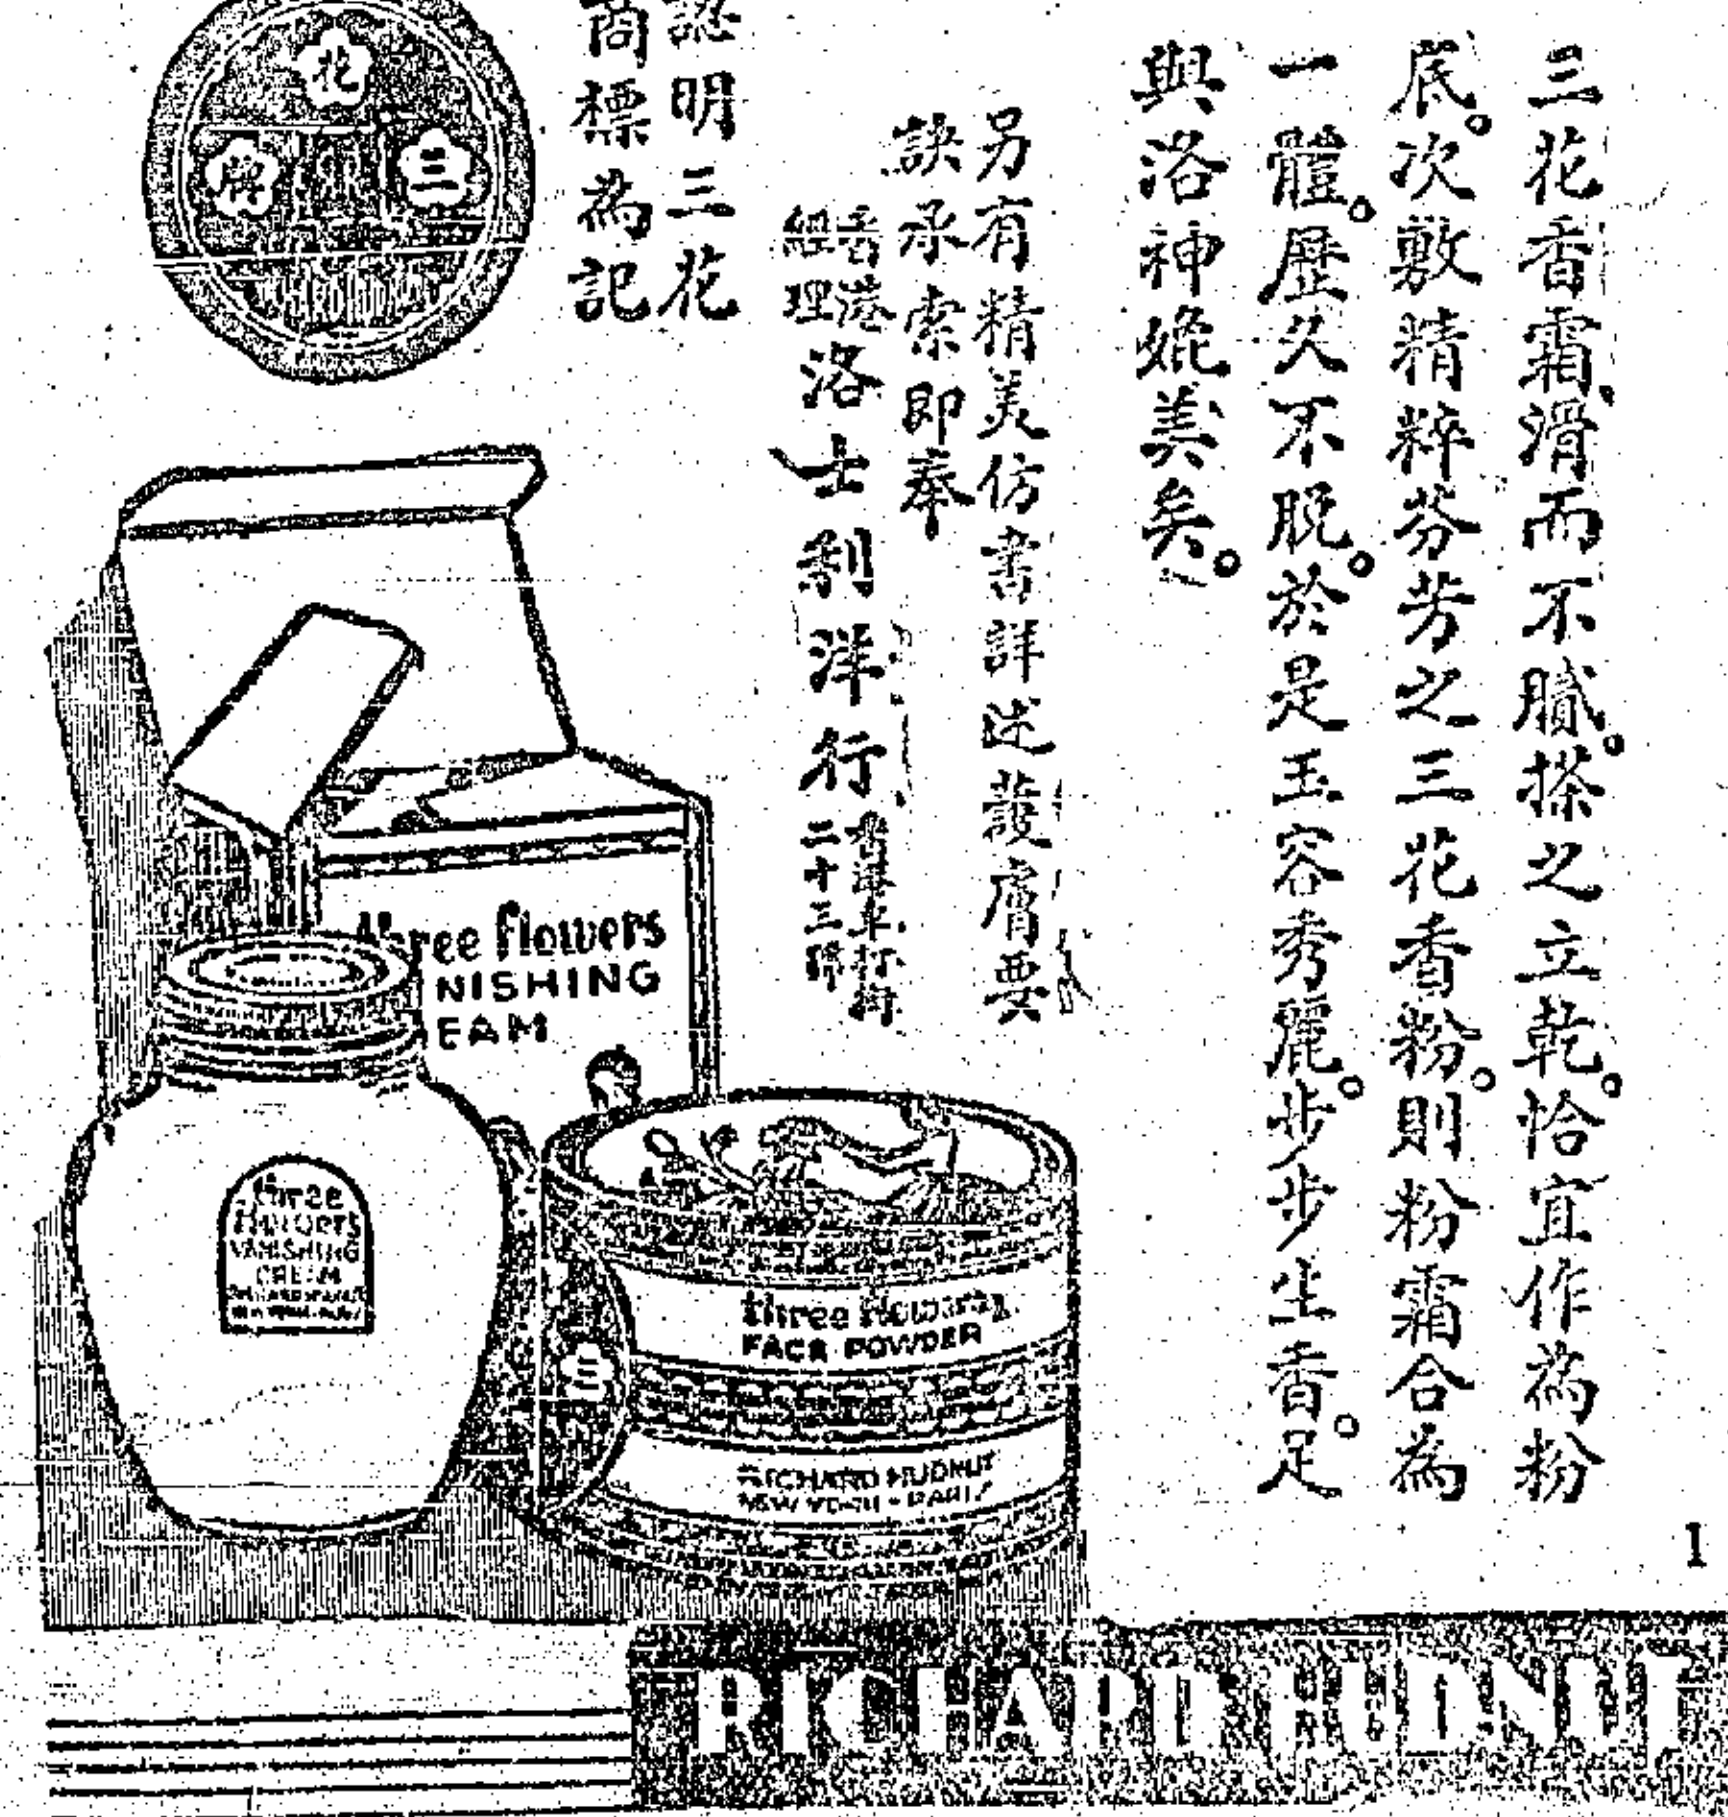 三花香霜、滑而不膩。搽之立乾。恰宜作為粉
底。次敷精粹芬芳之三花香粉。則粉霜合為
一體。歷久不脫。於是玉容秀麗。步步生香。足
與洛神媲美矣。
另有精美仿書詳述護膚要
訣承索即奉
香港
經理
洛士利洋行
二十三號
認明三花
商標為記
三花牌
three flowers
NISHING
EAM
three
flowers
VANISHING
CREAM
three flowers
FACE POWDER
RICHARD HUDNUT
NEW YORK - PARIS
三
1
RICHARD HUDNUT